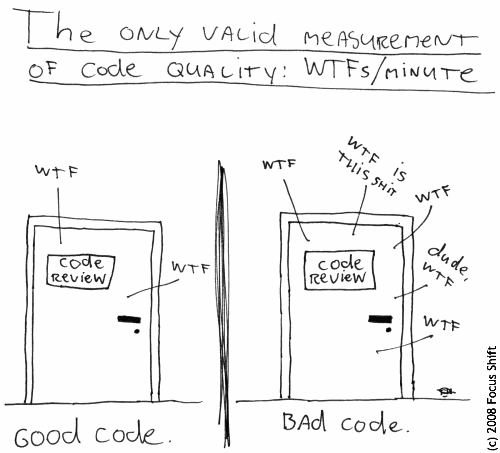 The ONLY VALID MEASUREMENT
OF Code QUALITY: WTFs/MINUTE
WTF
Code
REVIEW
WTF
GOOD CODE.
WTF
WTF IS
THIS SHIT
WTF
CODE
REVIEW
dude,
WTF
WTF
BAd code.
(c) 2008 Focus Shift